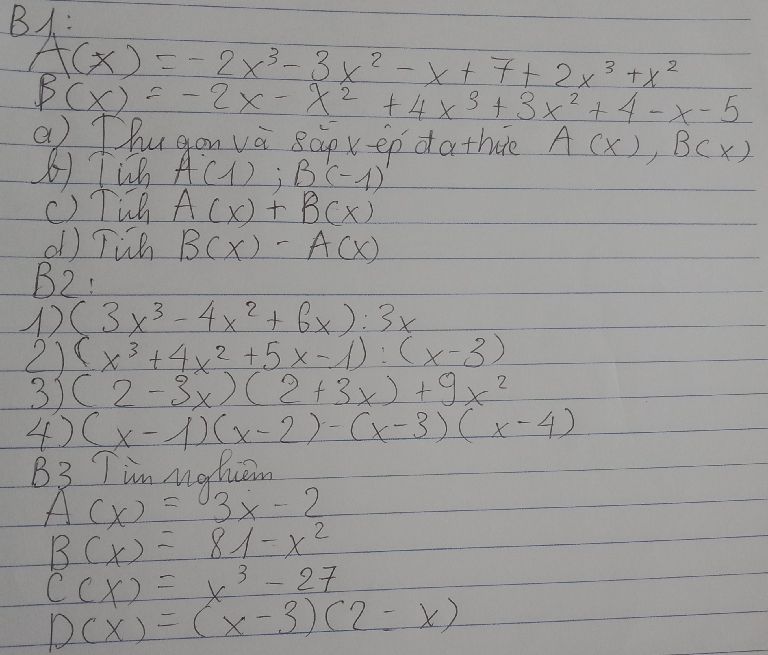 B1:
A(x) = -2x³ - 3x² - x + 7 + 2x³ + x²
B(x) = -2x - x² + 4x³ + 3x² + 4 - x - 5
a) Thu gọn và sắp xếp đa thức A(x), B(x)
b) Tính A(1) ; B(-1)
c) Tính A(x) + B(x)
d) Tính B(x) - A(x)
B2:
1) (3x³ - 4x² + 6x) : 3x
2) (x³ + 4x² + 5x - 1) : (x - 3)
3) (2 - 3x)(2 + 3x) + 9x²
4) (x - 1)(x - 2) - (x - 3)(x - 4)
B3 Tìm nghiệm
A(x) = 3x - 2
B(x) = 81 - x²
C(x) = x³ - 27
D(x) = (x - 3)(2 - x)